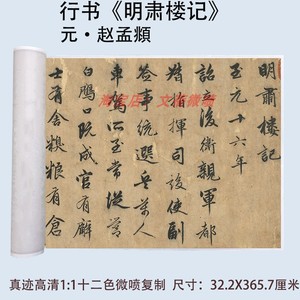 行书《明肃楼记》
元·赵孟頫
明肅樓記
至元十六年
詔立後衛親軍都
指揮司設使副
簽事統選兵萬人
車駕所至常從營
白鴈口既成官有廨
士有舍糗粮有倉
真迹高清1:1十二色微喷复制 尺寸：32.2X365.7厘米